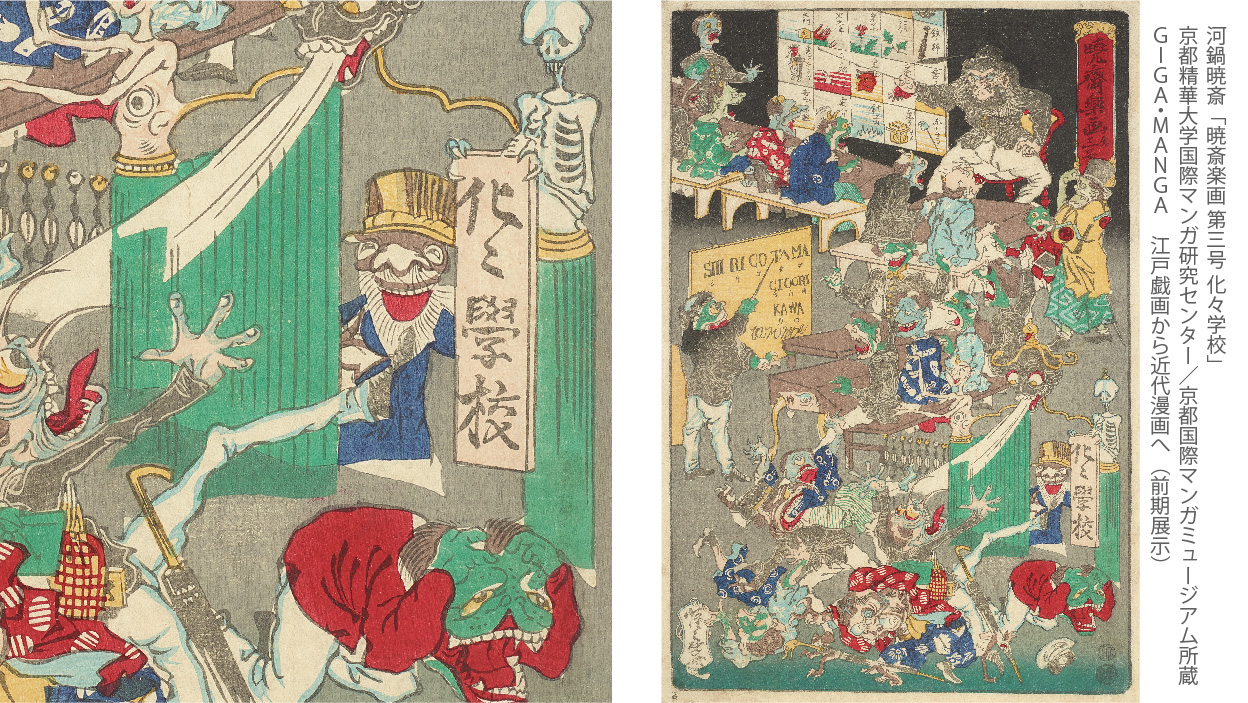 河鍋暁斎「暁斎楽画 第三号 化々学校」
京都精華大学国際マンガ研究センター／京都国際マンガミュージアム所蔵
GIGA・MANGA 江戸戯画から近代漫画へ（前期展示）
化々學校
暁齋樂画三
SHI RI GO TAMA
KAWA
化々學校